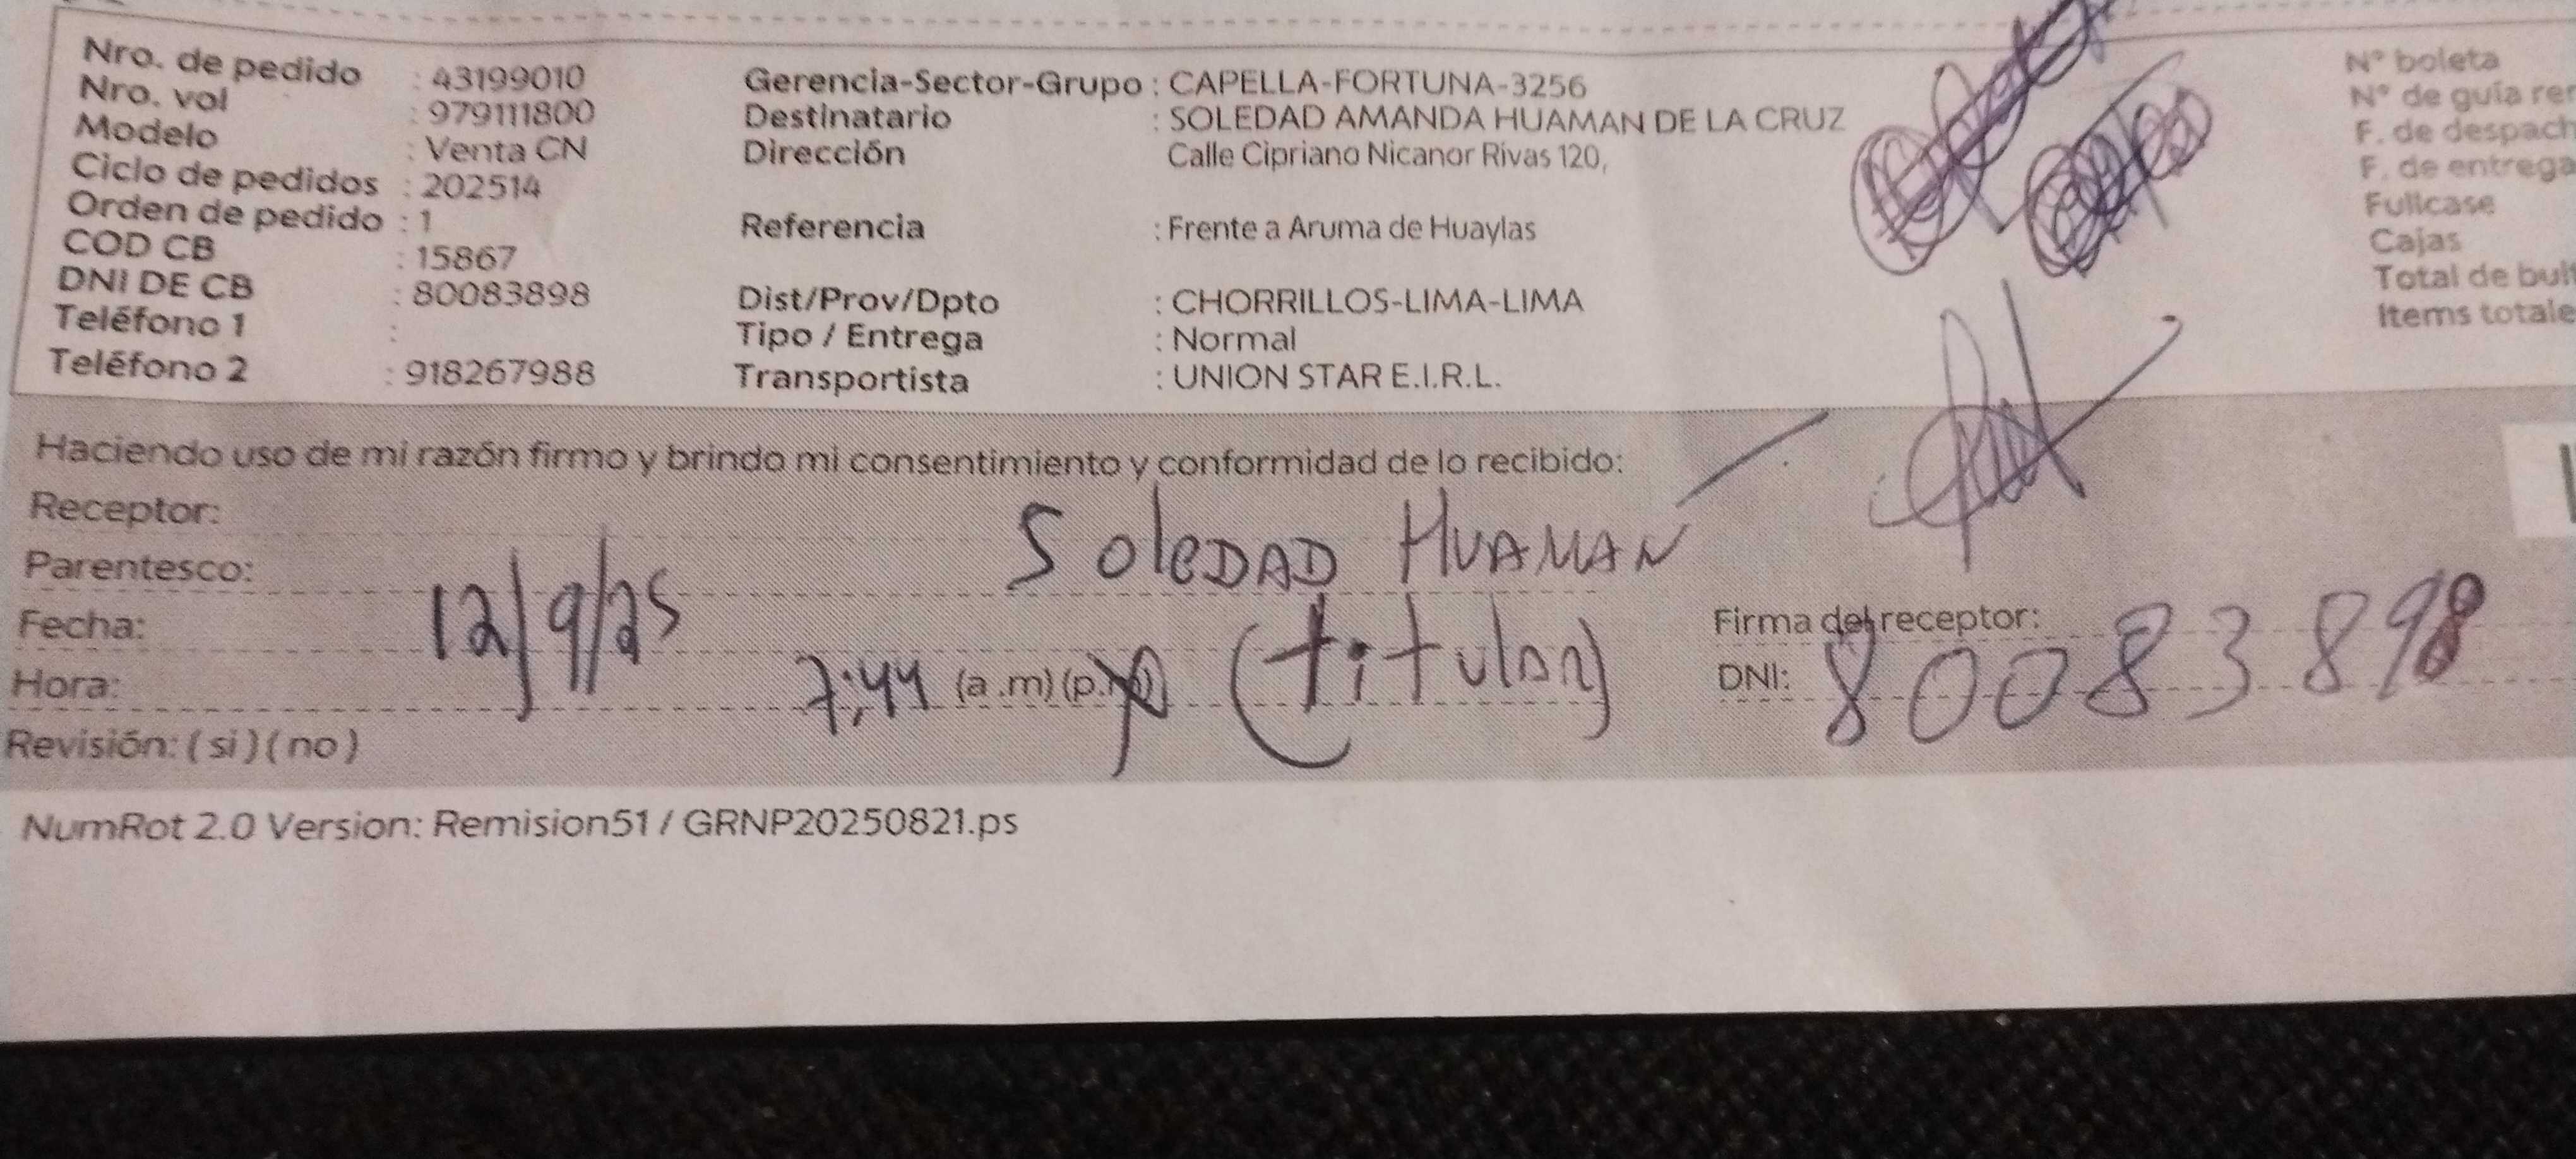 Nro. de pedido : 43199010
Nro. vol : 979111800
Modelo : Venta CN
Ciclo de pedidos : 202514
Orden de pedido : 1
COD CB : 15867
DNI DE CB : 80083898
Teléfono 1 :
Teléfono 2 : 918267988
Gerencia-Sector-Grupo : CAPELLA-FORTUNA-3256
Destinatario : SOLEDAD AMANDA HUAMAN DE LA CRUZ
Dirección Calle Cipriano Nicanor Rivas 120,
Referencia : Frente a Aruma de Huaylas
Dist/Prov/Dpto : CHORRILLOS-LIMA-LIMA
Tipo / Entrega : Normal
Transportista : UNION STAR E.I.R.L.
N° boleta
N° de guía rer
F. de despach
F. de entrega
Fullcase
Cajas
Total de bult
Items totale
Haciendo uso de mi razón firmo y brindo mi consentimiento y conformidad de lo recibido:
Receptor: SoleDAD HUAMAN
Parentesco: (titular)
Fecha: 12/9/25
Hora: 7:44 (a .m) (p.m)
Revisión: ( si ) ( no )
Firma del receptor:
DNI: 80083898
NumRot 2.0 Version: Remision51 / GRNP20250821.ps